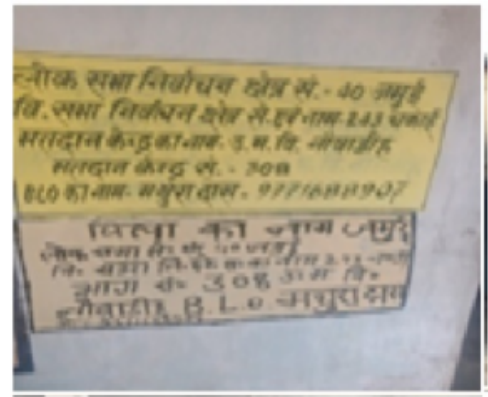 लोक सभा निर्वाचन क्षेत्र सं.- 40 जमुई
वि. सभा निर्वाचन क्षेत्र सं. एवं नाम- 243 चकाई
मतदान केन्द्र का नाम- उ. म. वि. नोवाडीह
मतदान केन्द्र सं. - 308
BLO का नाम- मथुरा दास - 9771688907
जिला का नाम जमुई
लोक सभा
भाग सं- 308 उ म वि०
नोवाडीह B.L.O मथुरा दास